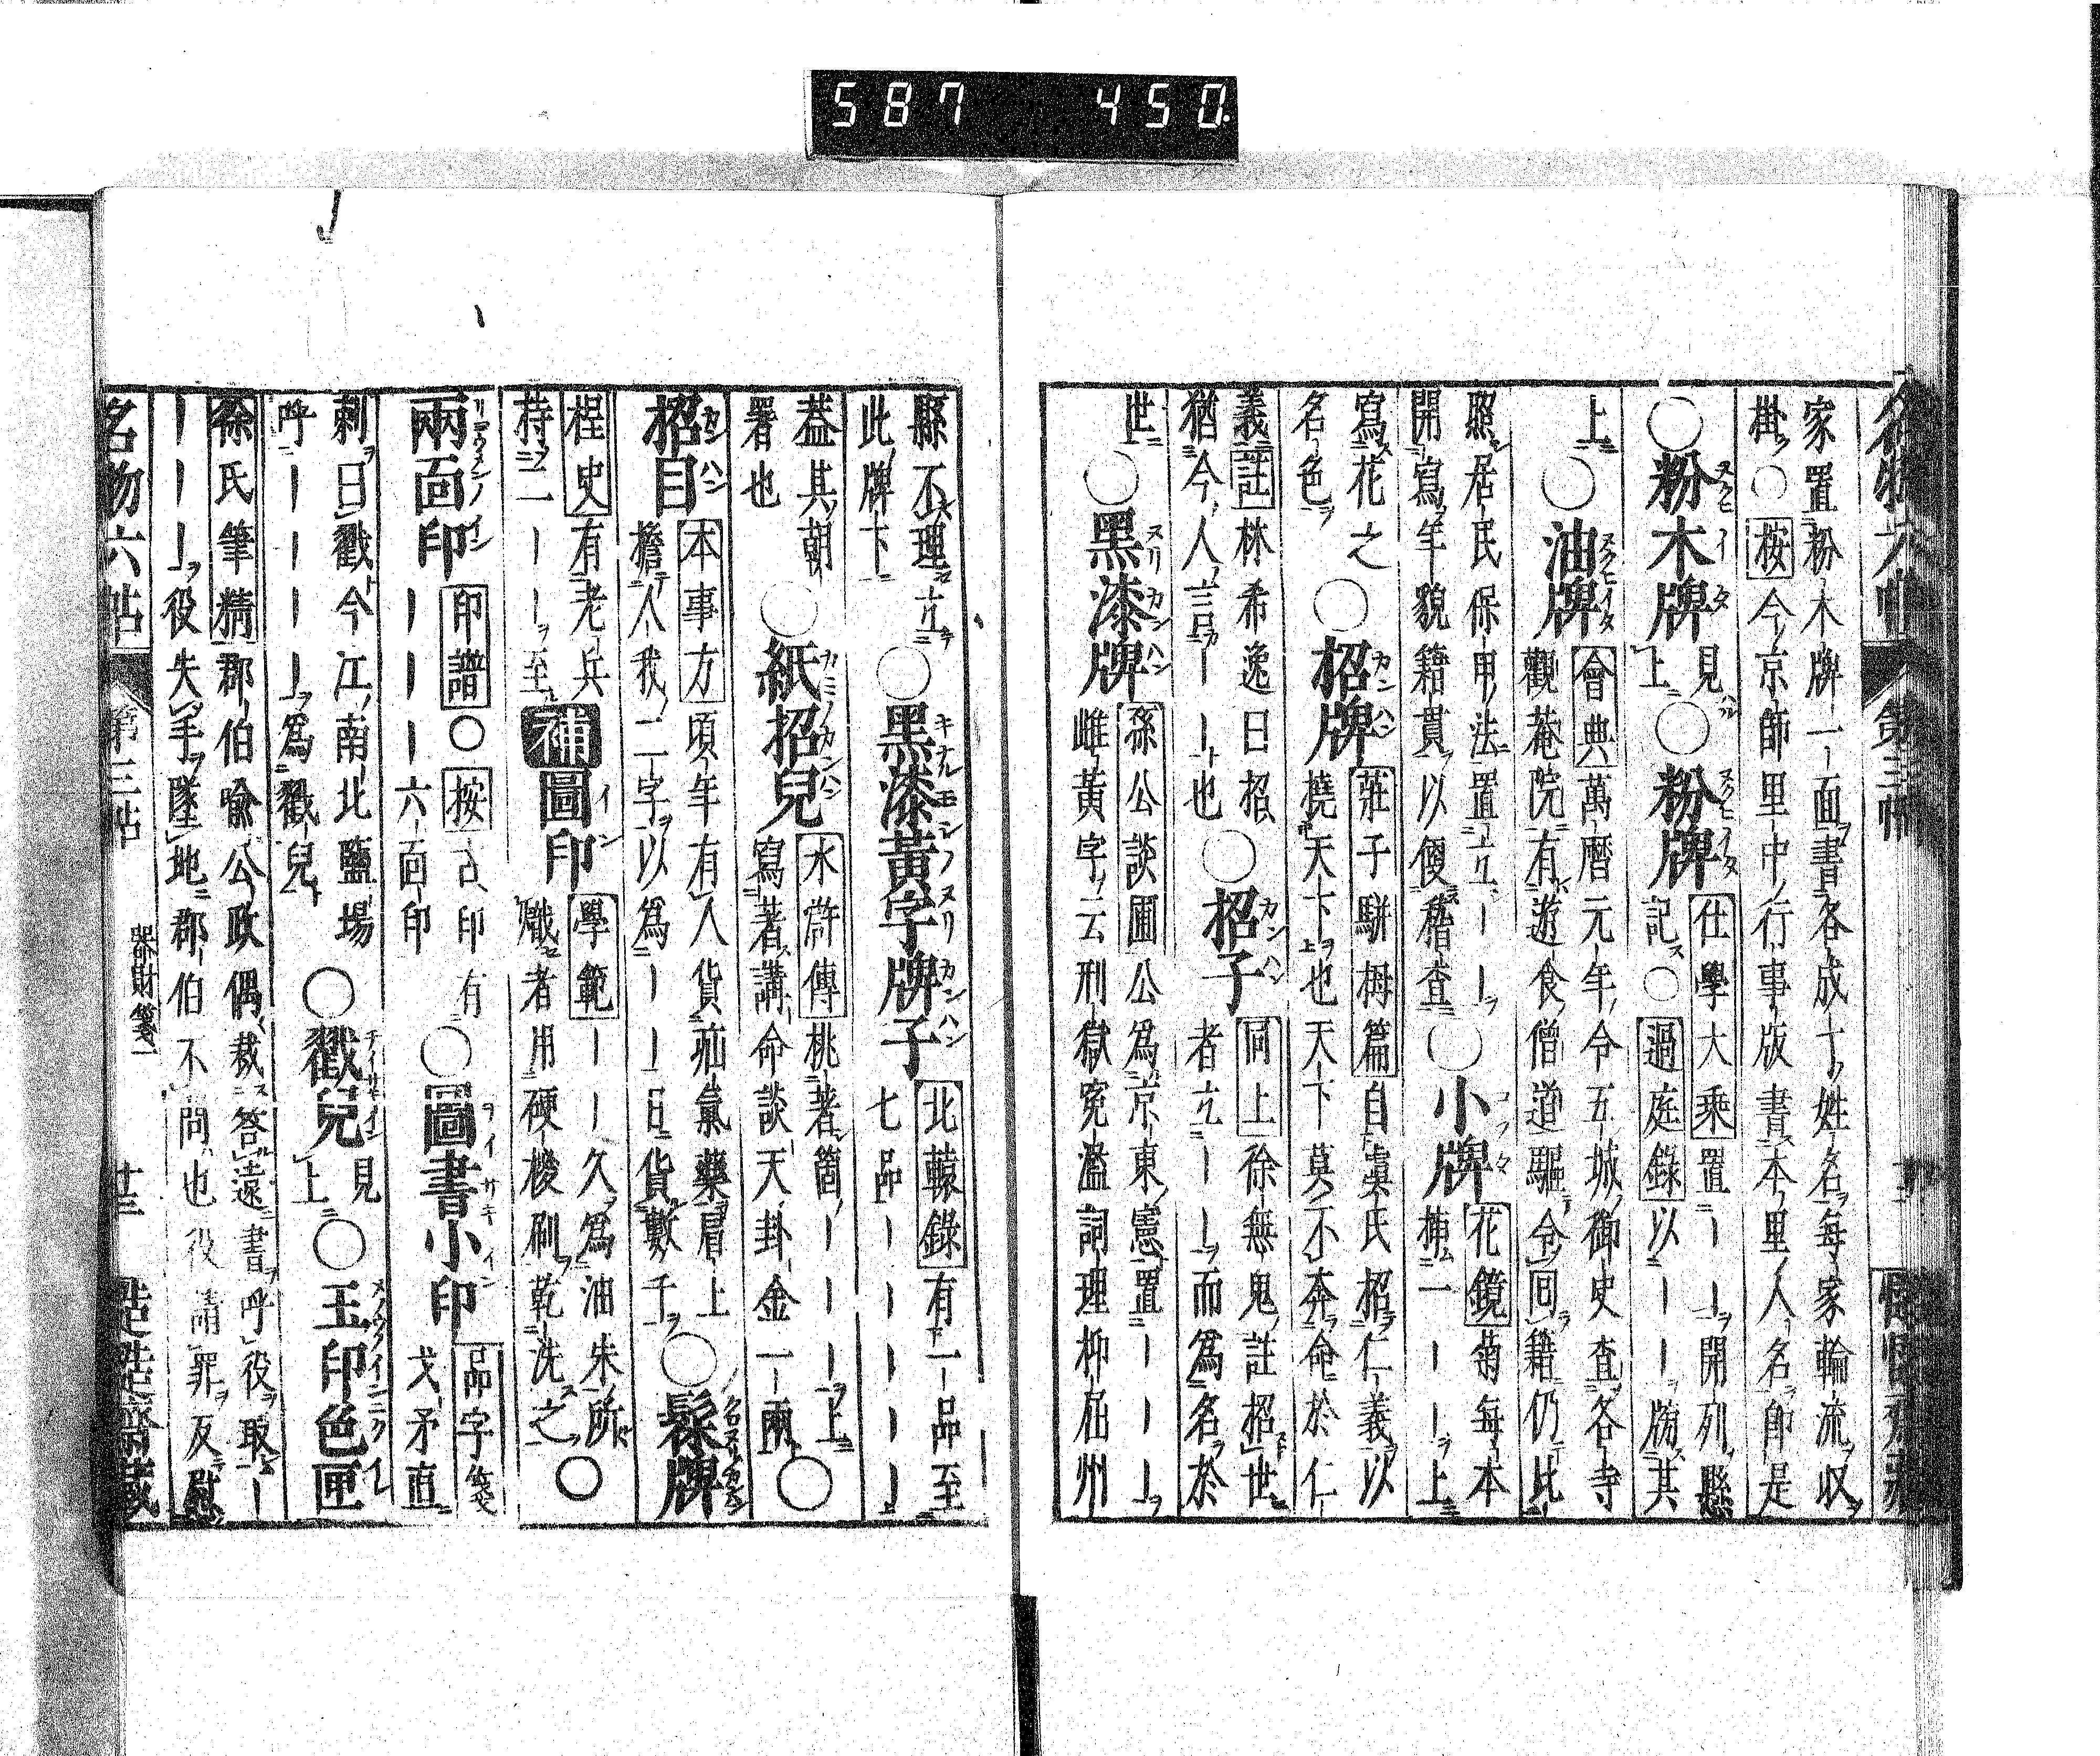 587 450
家置粉木牌一面書各成丁姓名每家輪流収
掛○按今京師里中行事版書本里人名即是
○粉木牌見上○粉牌仕學大乘置｜｜開列懸
記○過庭錄以｜｜牓其
上○油牌會典萬曆元年令五城御史查各寺
觀菴院有遊食僧道驅令回籍仍比
照居民保甲法置立｜｜
開寫年貌籍貫以便稽查○小牌花鏡菊每本
㨂一｜｜上
寫花之
名色○招牌莊子駢拇篇自虞氏招仁義以
撓天下也天下莫不奔命於仁
義註林希逸曰招
猶今人言｜｜也○招子同上徐無鬼註招世
者立｜｜而為名於
世○黑漆牌孫公談圃公為京東憲置｜｜｜
雌黃字云刑獄寃濫詞理抑屈州
縣不理立
此牌下○黑漆黃字牌子北轅錄有一品至
七品｜｜｜｜｜
蓋其朝
署也○紙招兒水滸傳桃著箇｜｜｜上
寫著講命談天卦金一兩○
招目本事方頃年有人貨疝氣藥肩上
擔人我二字以為｜｜日貨數千○髹牌
桯史有老兵
持二｜｜至補圖印學範｜｜久為油朱所
熾者用硬椶刷乾洗之○
兩面印印譜○按古印有
｜｜｜六面印○圖書小印品字箋
戈矛直
刺曰戳今江南北鹽場
呼｜｜｜｜為戳兒○戳兒見上○玉印色匣
徐氏筆精郡伯喩公政偶裁答遠書呼役取｜
｜｜｜役失手墜地郡伯不問也役請罪反慰
名物六帖 第三帖 器財箋二 廿三